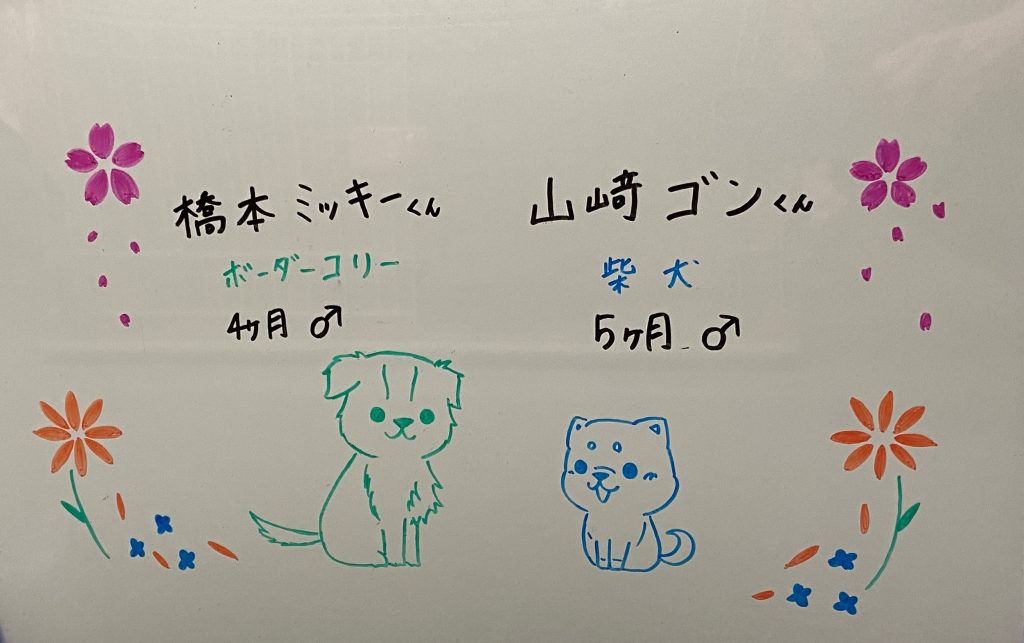 橋本 ミッキーくん
ボーダーコリー
4ヶ月 ♂
山﨑 ゴンくん
柴犬
5ヶ月 ♂